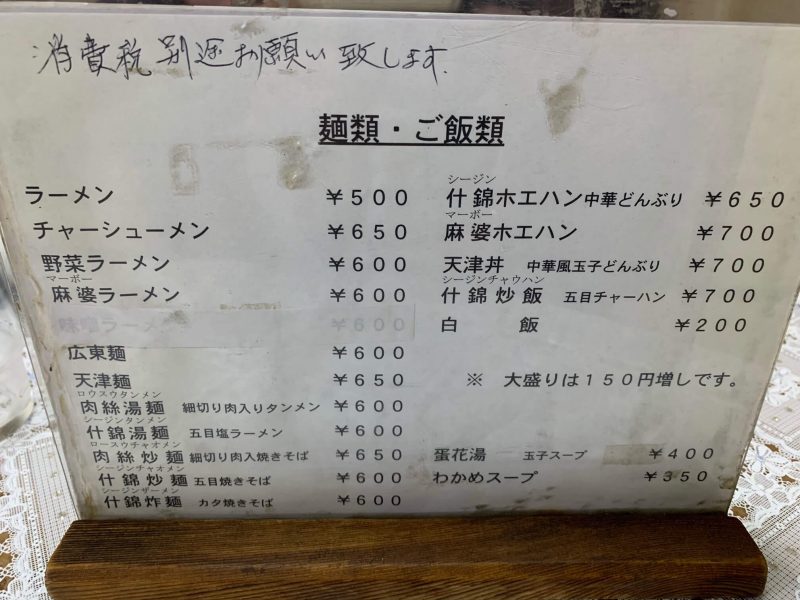 消費税別途お願い致します.
麺類・ご飯類
ラーメン ￥５００
チャーシューメン ￥６５０
野菜ラーメン ￥６００
マーボー
麻婆ラーメン ￥６００
味噌ラーメン ￥６００
広東麺 ￥６００
天津麺 ￥６５０
ロウスウタンメン
肉絲湯麺 細切り肉入りタンメン ￥６００
シージンタンメン
什錦湯麺 五目塩ラーメン ￥６００
ロースウチャオメン
肉絲炒麺 細切り肉入焼きそば ￥６５０
シージンチャオメン
什錦炒麺 五目焼きそば ￥６００
シージンザーメン
什錦炸麺 カタ焼きそば ￥６００
シージン
什錦ホエハン 中華どんぶり ￥６５０
マーボー
麻婆ホエハン ￥７００
天津丼 中華風玉子どんぶり ￥７００
シージンチャウハン
什錦炒飯 五目チャーハン ￥７００
白飯 ￥２００
※ 大盛りは１５０円増しです。
蛋花湯 玉子スープ ￥４００
わかめスープ ￥３５０